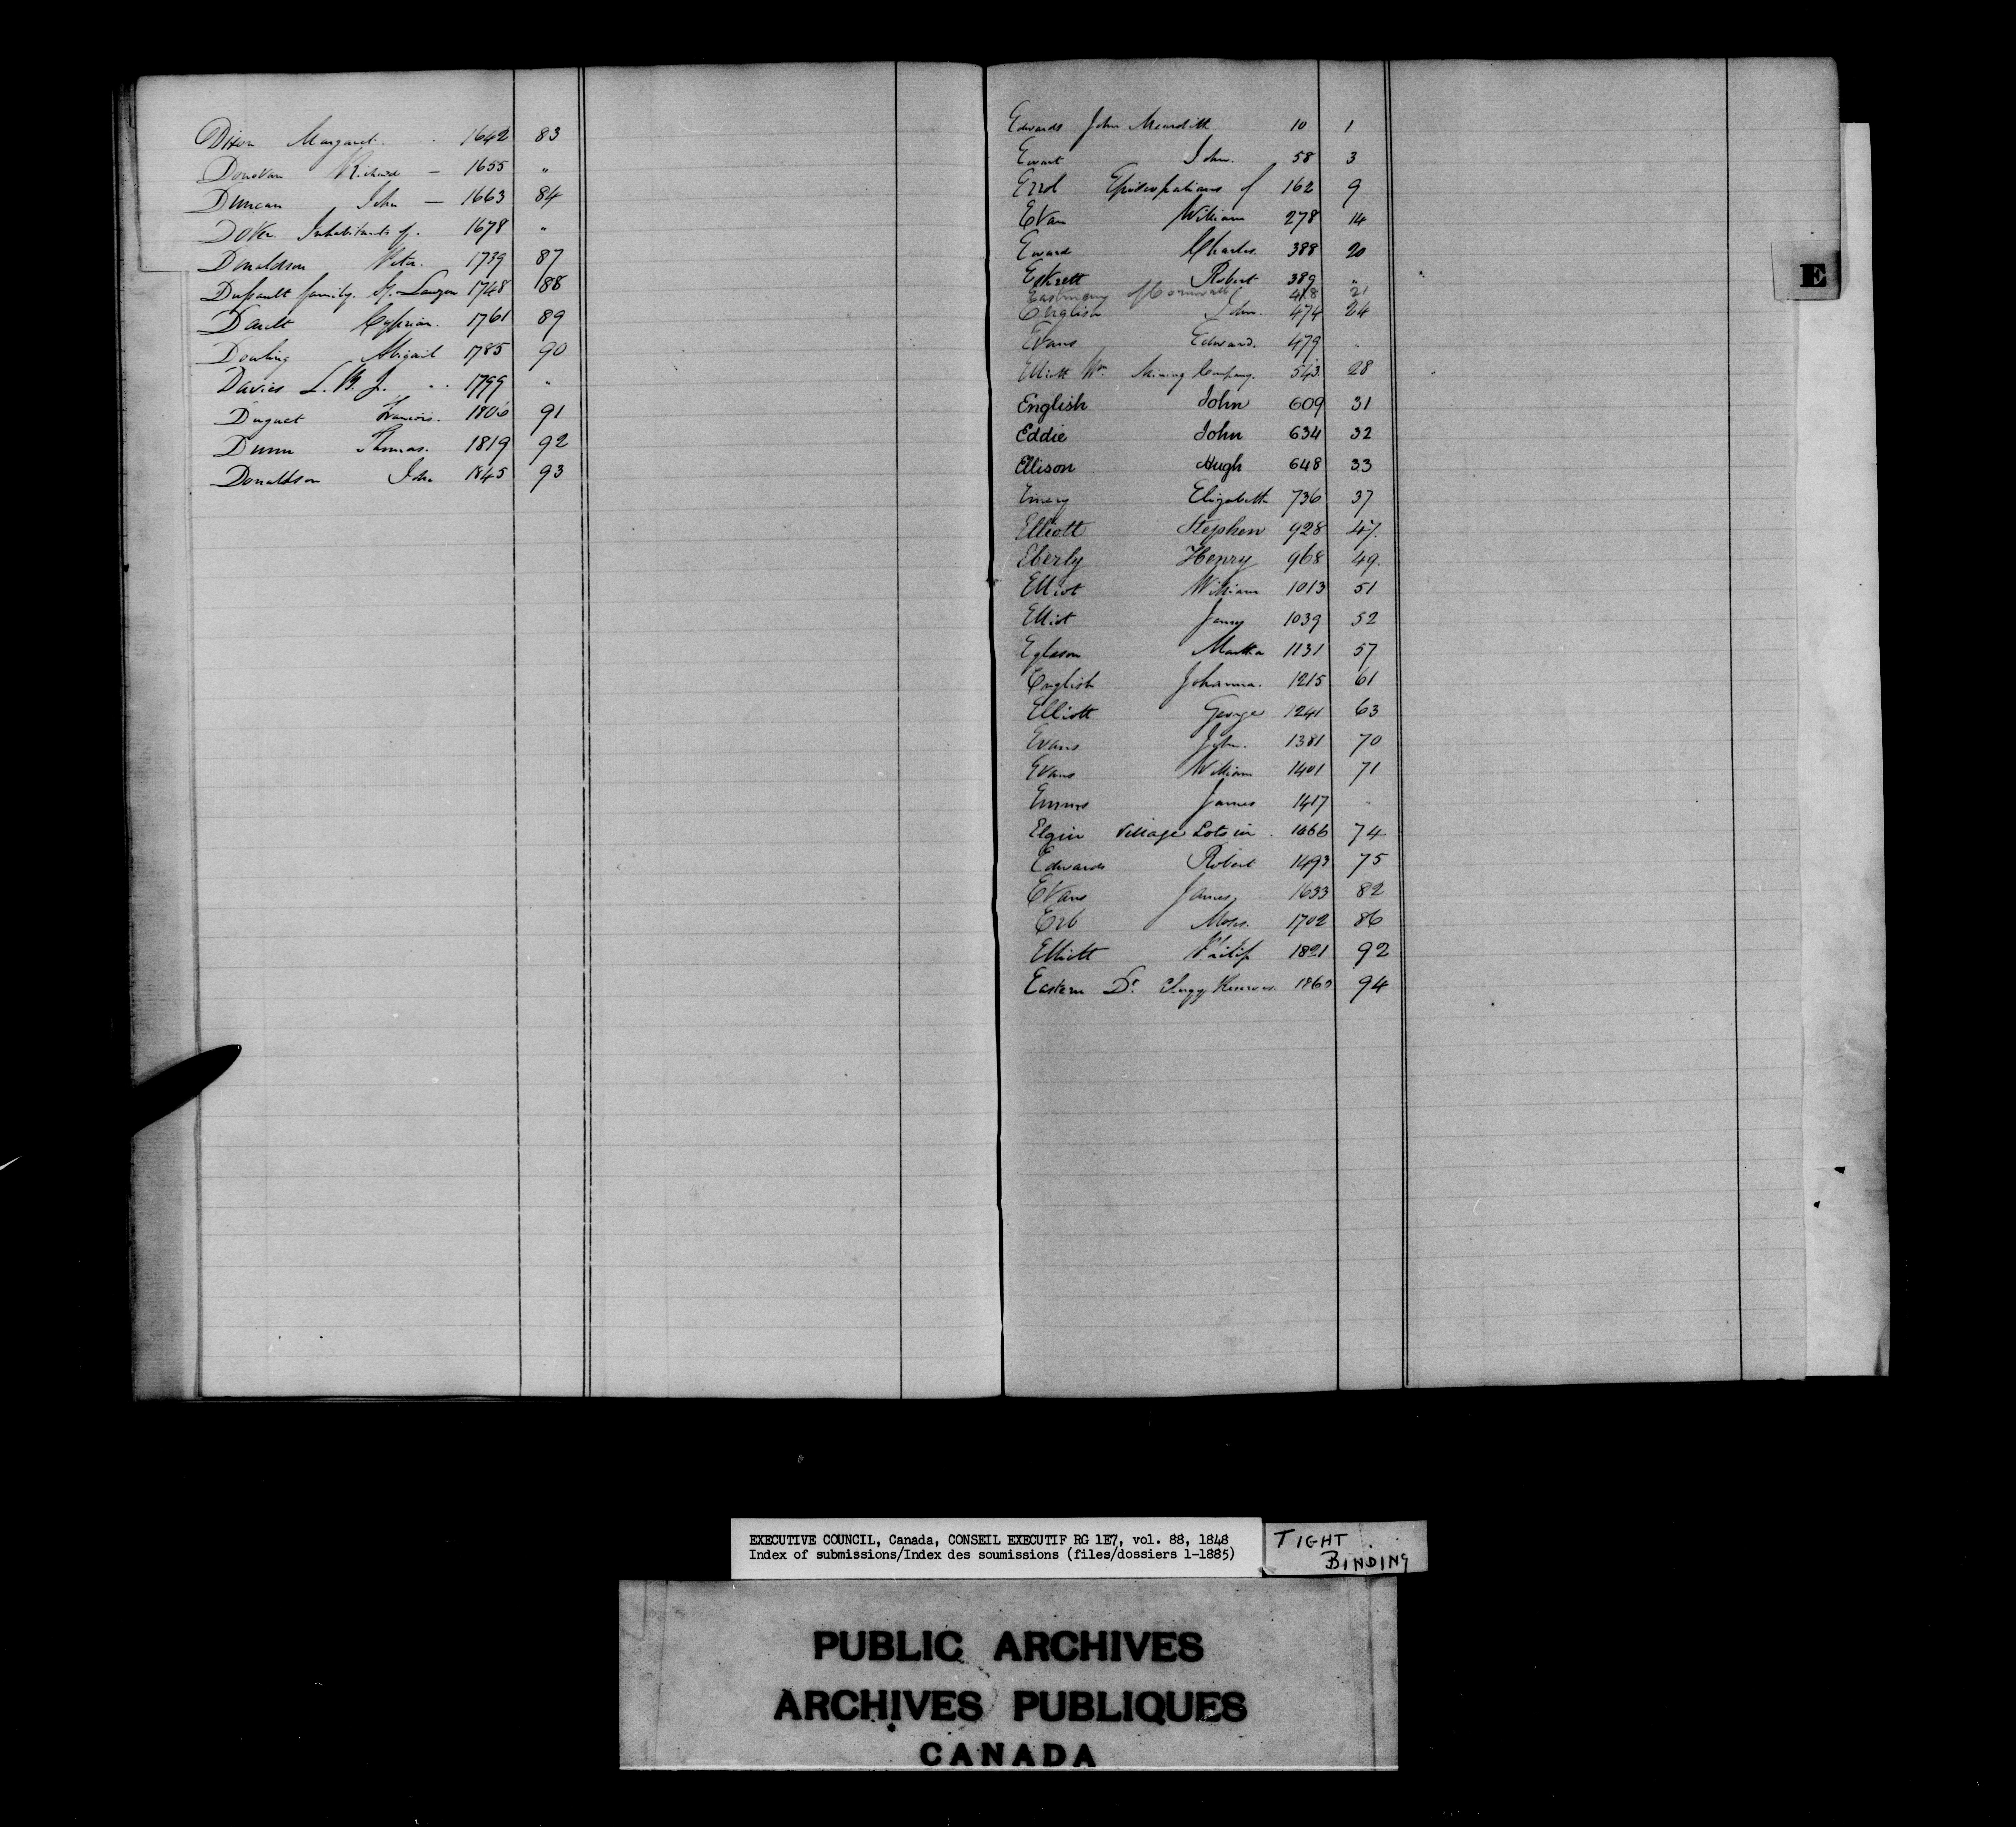 Dixon Margaret. . 1642 83
Donovan Richard — 1655 "
Duncan John — 1663 84
Dover Inhabitants of. 1678 "
Donaldson Peter. 1739 87
family. 1748 88
Dault Cyprian. 1761 89
Dowling Abigail 1785 90
Davies L. 1799 "
Duguet Francois. 1806 91
Dunn Thomas. 1819 92
Donaldson John 1845 93
Edwards John Meredith 10 1
Ewart John. 58 3
Errol Episcopalians of 162 9
Evan William 278 14
Charles. 388 20
Robert 389 "
of Cornwall 418 21
English John. 474 24
Evans Edward. 479 "
Elliott Wm. Mining Company. 543. 28
English John 609 31
Eddie John 634 32
Ellison Hugh 648 33
Emery Elizabeth 736 37
Elliott Stephen 928 47.
Eberly Henry 968 49.
Elliot William 1013 51
Elliot 1039 52
Egleson Martha 1131 57
English Johanna. 1215 61
Elliott George 1241 63
Evans John. 1381 70
Evans William 1401 71
James 1417 "
Elgin Village Lots in . 1466 74
Edwards Robert 1493 75
Evans James, 1633 82
Erb Moses. 1702 86
Elliott Philip 1821 92
Eastern Dt. Clergy Reserves. 1860 94
E
EXECUTIVE COUNCIL, Canada, CONSEIL EXECUTIF RG 1E7, vol. 88, 1848
Index of submissions/Index des soumissions (files/dossiers 1-1885)
TIGHT
BINDING
PUBLIC ARCHIVES
ARCHIVES PUBLIQUES
CANADA